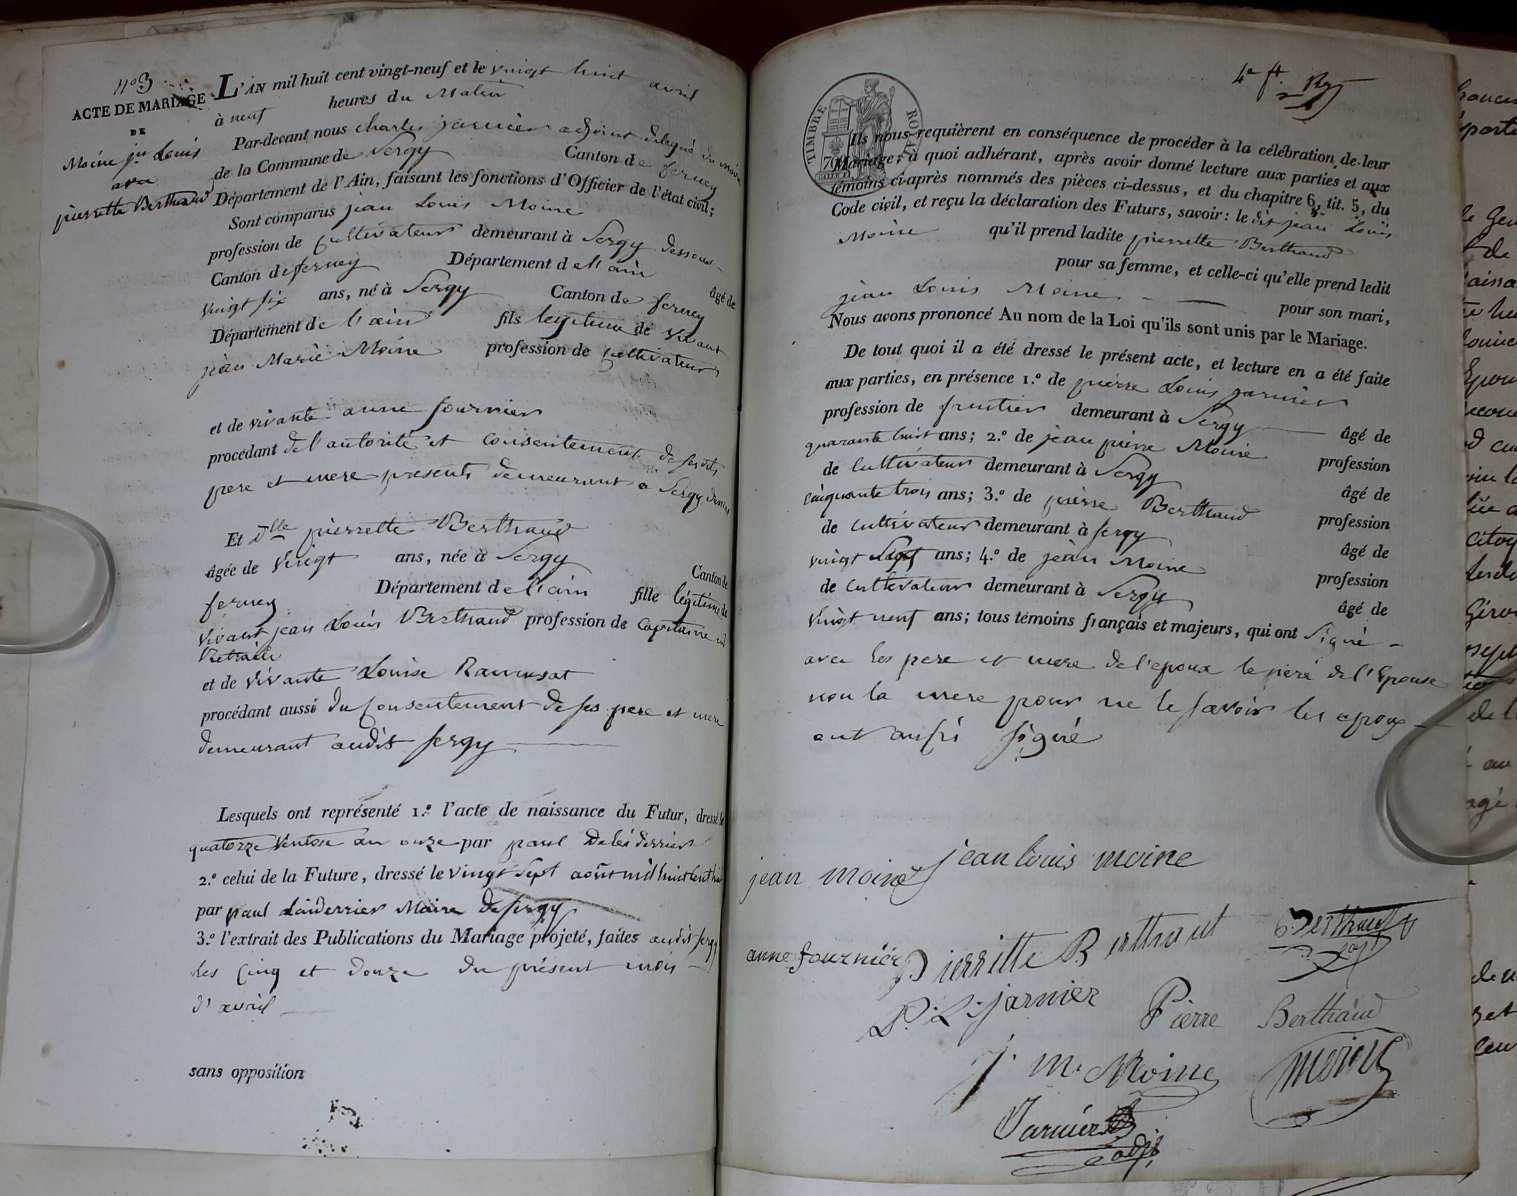 n° 3
ACTE DE MARIAGE
DE
Moine jn Louis
avec
pierrette Berthaud
L'AN mil huit cent vingt-neuf et le vingt huit avril
à neuf heures du Matin
Par-devant nous charles jarnier adjoint délégué du maire
de la Commune de Sergy Canton de ferney
Département de l'Ain, faisant les fonctions d'Officier de l'état civil;
Sont comparus jean Louis Moine
profession de Cultivateur demeurant à Sergy dessous
Canton de ferney Département de l'ain âgé de
vingt six ans, né à Sergy Canton de ferney
Département de l'ain fils légitime de vivant
jean Marie Moine profession de Cultivateur
et de vivante anne fournier
procédant de l'autorité et consentement de sesdits
pere et mere presents demeurant a Sergy
Et Dlle pierrette Berthaud
âgée de vingt ans, née à Sergy Canton de
ferney Département de l'ain fille légitime de
vivant jean Louis Berthaud profession de Capitaine en
Retraite
et de vivante Louise Ravussat
procédant aussi du Consentement de ses pere et mere
demeurant audit Sergy
Lesquels ont représenté 1.º l'acte de naissance du Futur, dressé le
quatorze Ventose an onze par paul
2.º celui de la Future, dressé le vingt Sept août mil huit cent huit
par paul Laiderrier Maire de Sergy
3.º l'extrait des Publications du Mariage projeté, faites audit Sergy
les Cinq et douze du présent mois
d'avril
sans opposition
TIMBRE ROYAL
Ils nous requièrent en conséquence de procéder à la célébration de leur
Mariage; à quoi adhérant, après avoir donné lecture aux parties et aux
témoins ci-après nommés des pièces ci-dessus, et du chapitre 6, tit. 5, du
Code civil, et reçu la déclaration des Futurs, savoir: le dit jean Louis
Moine qu'il prend ladite pierrette Berthaud
pour sa femme, et celle-ci qu'elle prend ledit
jean Louis Moine pour son mari,
Nous avons prononcé Au nom de la Loi qu'ils sont unis par le Mariage.
De tout quoi il a été dressé le présent acte, et lecture en a été faite
aux parties, en présence 1.º de pierre Louis jarnier
profession de fruitier demeurant à Sergy âgé de
quarante huit ans; 2.º de jean pierre Moine profession
de Cultivateur demeurant à Sergy âgé de
cinquante trois ans; 3.º de pierre Berthaud profession
de cultivateur demeurant à Sergy âgé de
vingt Sept ans; 4.º de jean Moine profession
de Cultivateur demeurant à Sergy âgé de
vingt neuf ans; tous témoins français et majeurs, qui ont Signé
avec les pere et mere de l'epoux le pere de l'Epouse
non la mere pour ne le savoir les epoux
ont aussi signé
jean moine jean louis moine
anne fournier Pierritte Berthaut Berthaud
P. L. jarnier Pierre Berthaud
j. m. Moine moine
Jarnier adjt